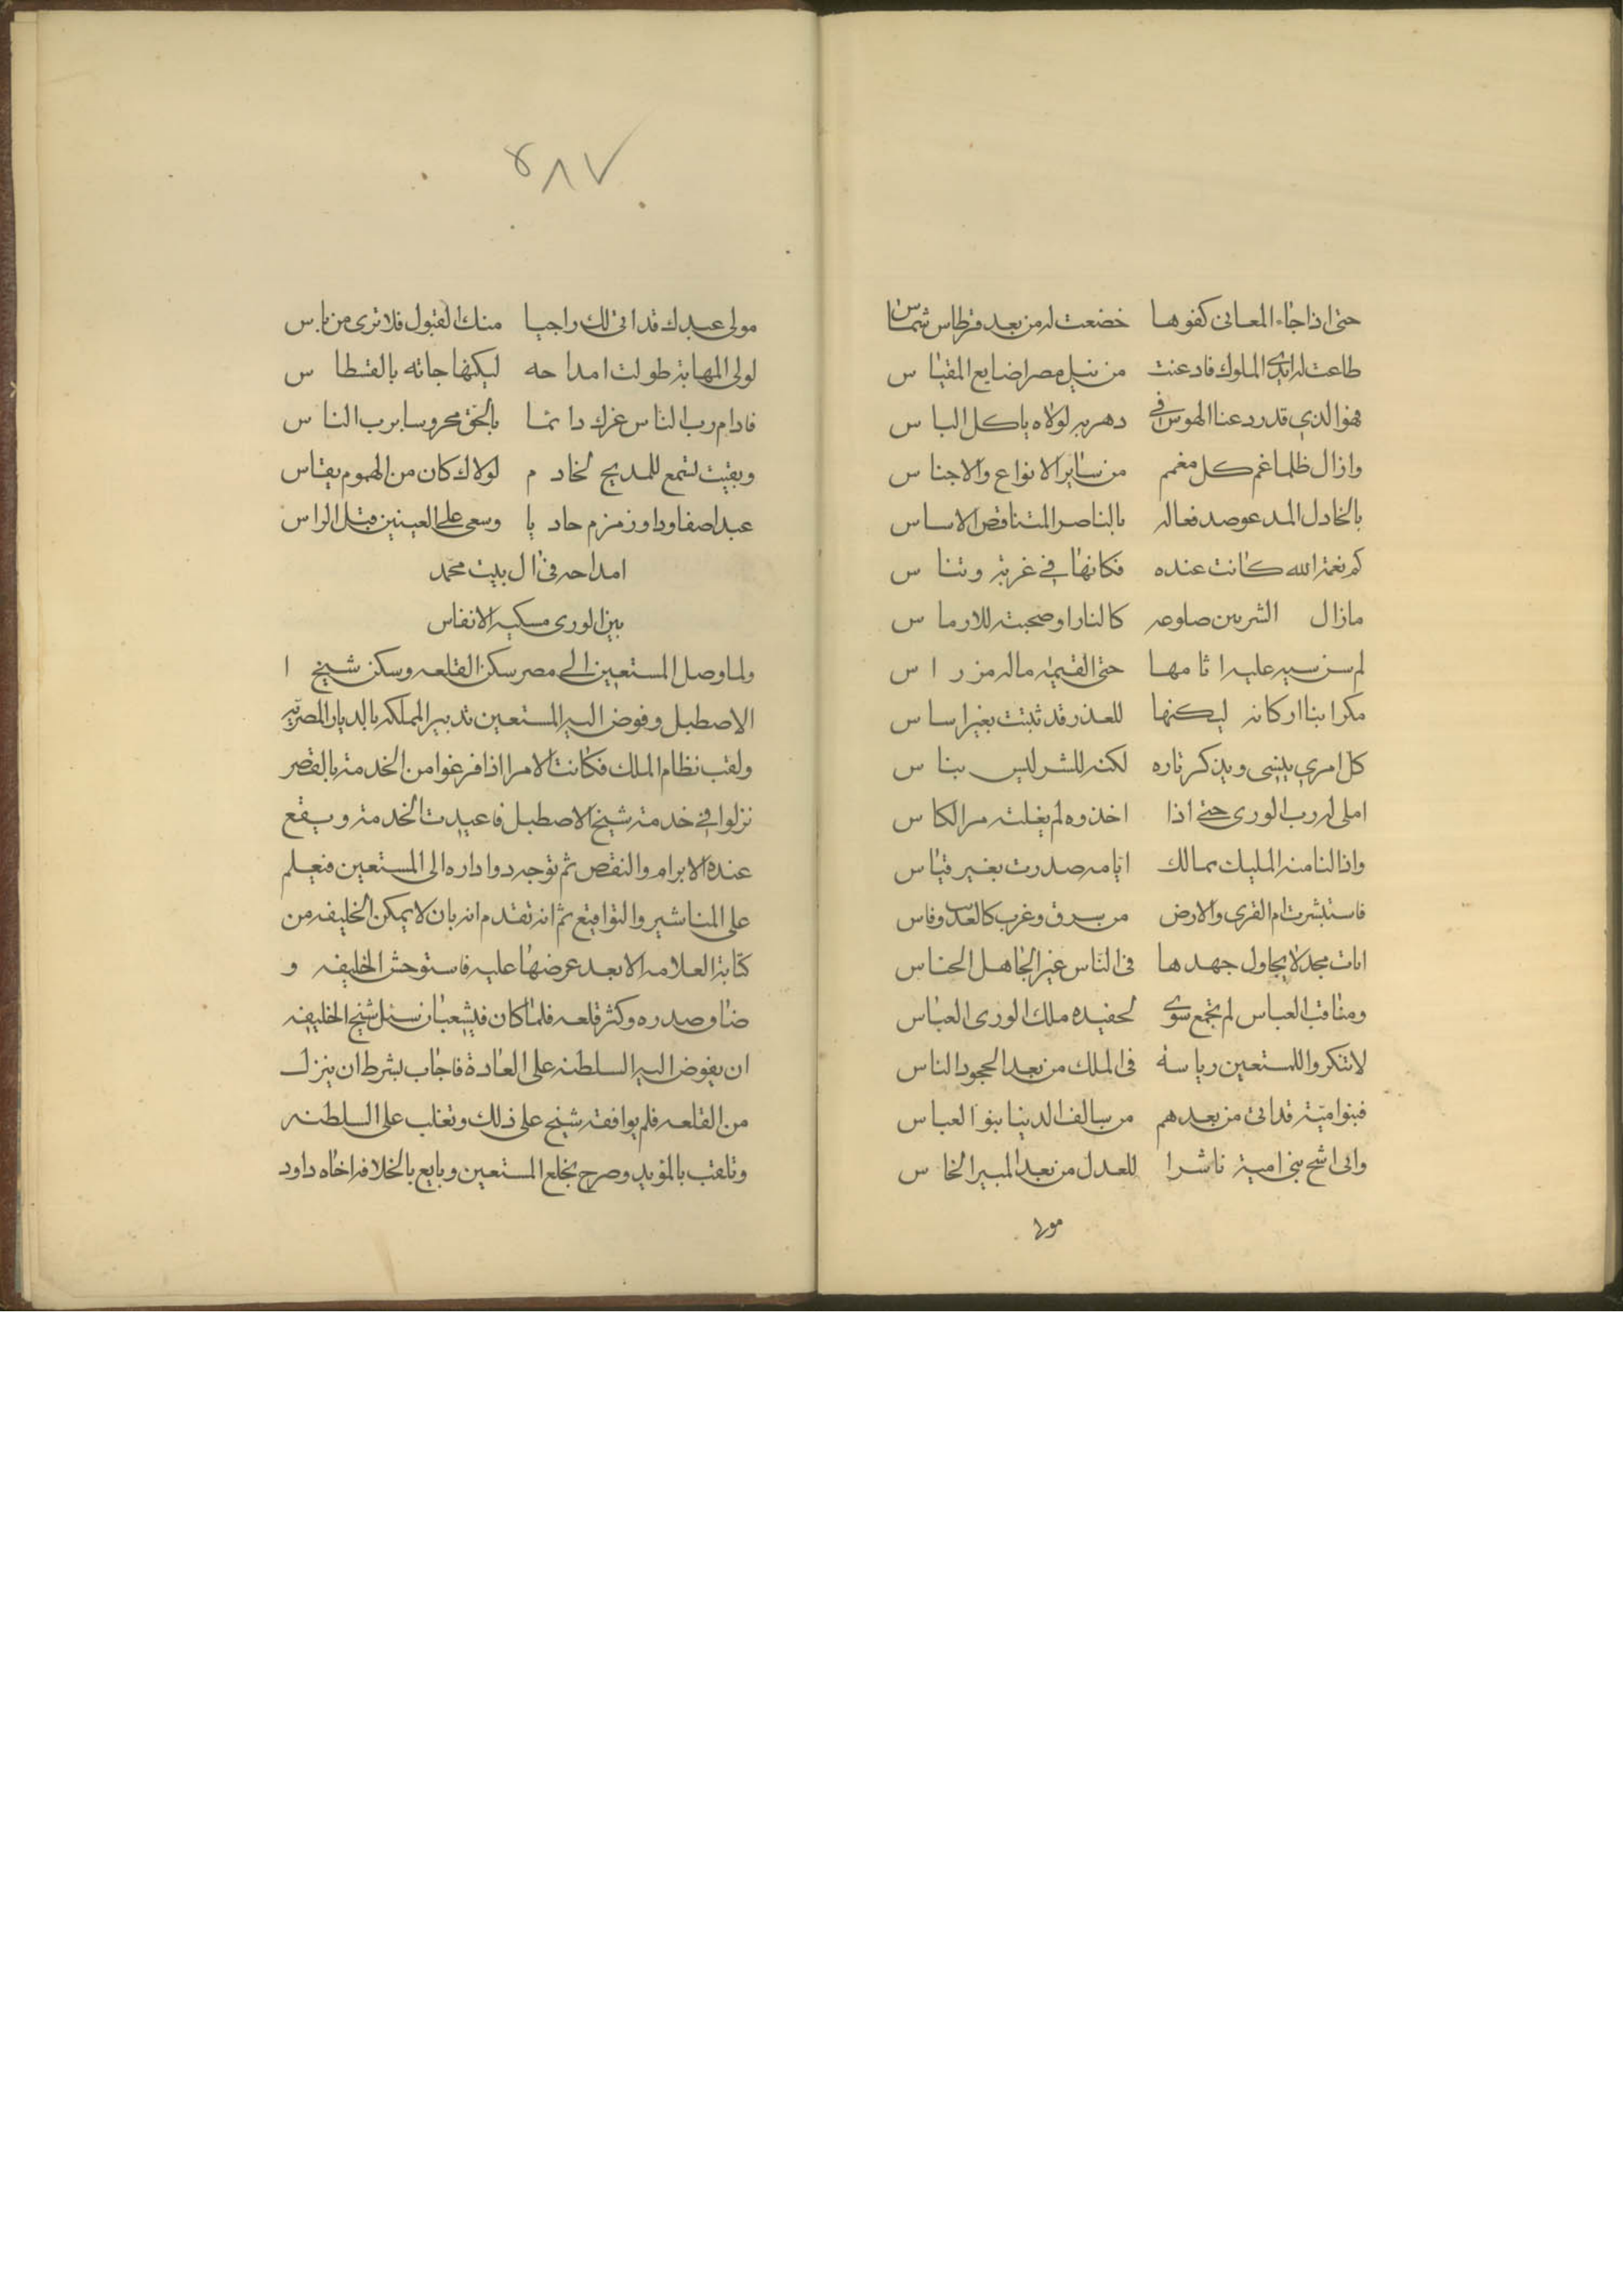 حتى اذا جاء المعانى كفوها خضعت له من بعد فرطاس شماس
طاعت له ايدى الملوك فادعنت من نيل مصر اضايع المقياس
فهو الذي قدرد عنا الهوس في دهر به لولاه ياكل الباس
وازال ظلما غم كل مغمم من ساير الانواع والاجناس
بالخادل المدعو ضد فعاله بالناصر المتناقص الاساس
كم نعمة الله كانت عنده فكانها في غربة وتناس
مازال الشر بين ضلوعه كالنار او صحبته للارماس
لم سن سيه عليه اثامها حتى القيمه ماله من راس
مكرا بنا اركانه ليكنها للعذر قد ثبتت بغير اساس
كل امري ينسى ويذكر تاره لكنه للشر ليس بناس
املى له رب الورى حتى اذا اخذوه لم يفلته مر الكاس
واذالنا منه المليك بمالك ايامه صدرت بغير قياس
فاستبشرت ام القرى والارض من سرق وغرب كالعدب وفاس
ايات مجد لا يحاول جهدها فى الناس غير الجاهل الخناس
ومناقب العباس لم تجمع سوى لحفيده ملك الورى العباس
لاتنكروا للمستعين رياسة فى الملك من بعد الحجود الناس
فبنو امية قد اتى من بعدهم من سالف الدنيا بنو العباس
واتى اشج بنى امية ناشرا للعدل من بعد المبير الخاس
مولا
٥٨٧
مولى عبدك قد اتى لك راجيا منك القبول فلا ترى من باس
لولى المهابة طولت امداحه ليكنها جاته بالقسطاس
فادام رب الناس عزك دائما بالحق محروسا برب الناس
وبقيت تستمع للمديح لخادم لولاك كان من الهموم يقاس
عبد اصفا ودا وزمزم حاديا وسعى على العينين قبل الراس
امداحه فى ال بيت محمد
بين الورى مسكيه الانفاس
ولما وصل المستعين الى مصر سكن القلعه وسكن شيخ ا
الاصطبل وفوض اليه المستعين تدبير المملكه بالديار المصريه
ولقب نظام الملك فكانت الامرا اذا فرغوا من الخدمة بالقصر
نزلوا في خدمة شيخ الاصطبل فاعيدت الخدمة ويقع
عنده الابرام والنقص ثم توجه دواداره الى المستعين فيعلم
على المناشير والتواقيع ثم انه تقدم انه بان لا يمكن الخليفه من
كتابة العلامه الا بعد عرضها عليه فاستوحش الخليفه و
ضاق صدره وكثر قلعه فلما كان في شعبان سئل شيخ الخليفه
ان يفوض اليه السلطنه على العادة فاجاب بشرط ان ينزل
من القلعه فلم يوافقه شيخ على ذلك وتغلب على السلطنه
وتلقب بالمويد وصرح بخلع المستعين وبايع بالخلافه اخاه داود